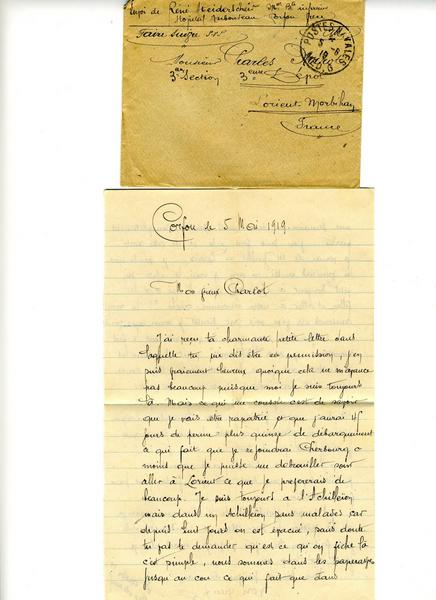 Envoi de René Heiderscheid
Hopital Corfou Grèce
Faire suivre SVP
Monsieur Charles
3ème Section 3ème Dépôt
Lorient-Morbihan
France
POSTES NAVALES
Corfou le 5 Mai 1919
Mon vieux Charlot
J'ai reçu ta charmante petite lettre dans
laquelle tu me dit être en permission, j'en
suis vraiment heureux quoique cela ne m'avance
pas beaucoup puisque moi je suis toujours
là. Mais ce qui me console c'est de savoir
que je vais être rapatrié et que j'aurai 45
jours de perme plus quinze de débarquement
ce qui fait que je rejoindrai Cherbourg a
moins que je puisse me debrouiller pour
aller à Lorient ce que je préfererais de
beaucoup. Je suis toujours a l'Achilleion
mais dans un Achilleion sans malades car
depuis huit jours on est évacué, sans doute
tu vas te demander qu'est ce qu'on fiche là
c'est simple, nous sommes dans les paperasses
jusqu'au cou ce qui fait que dans